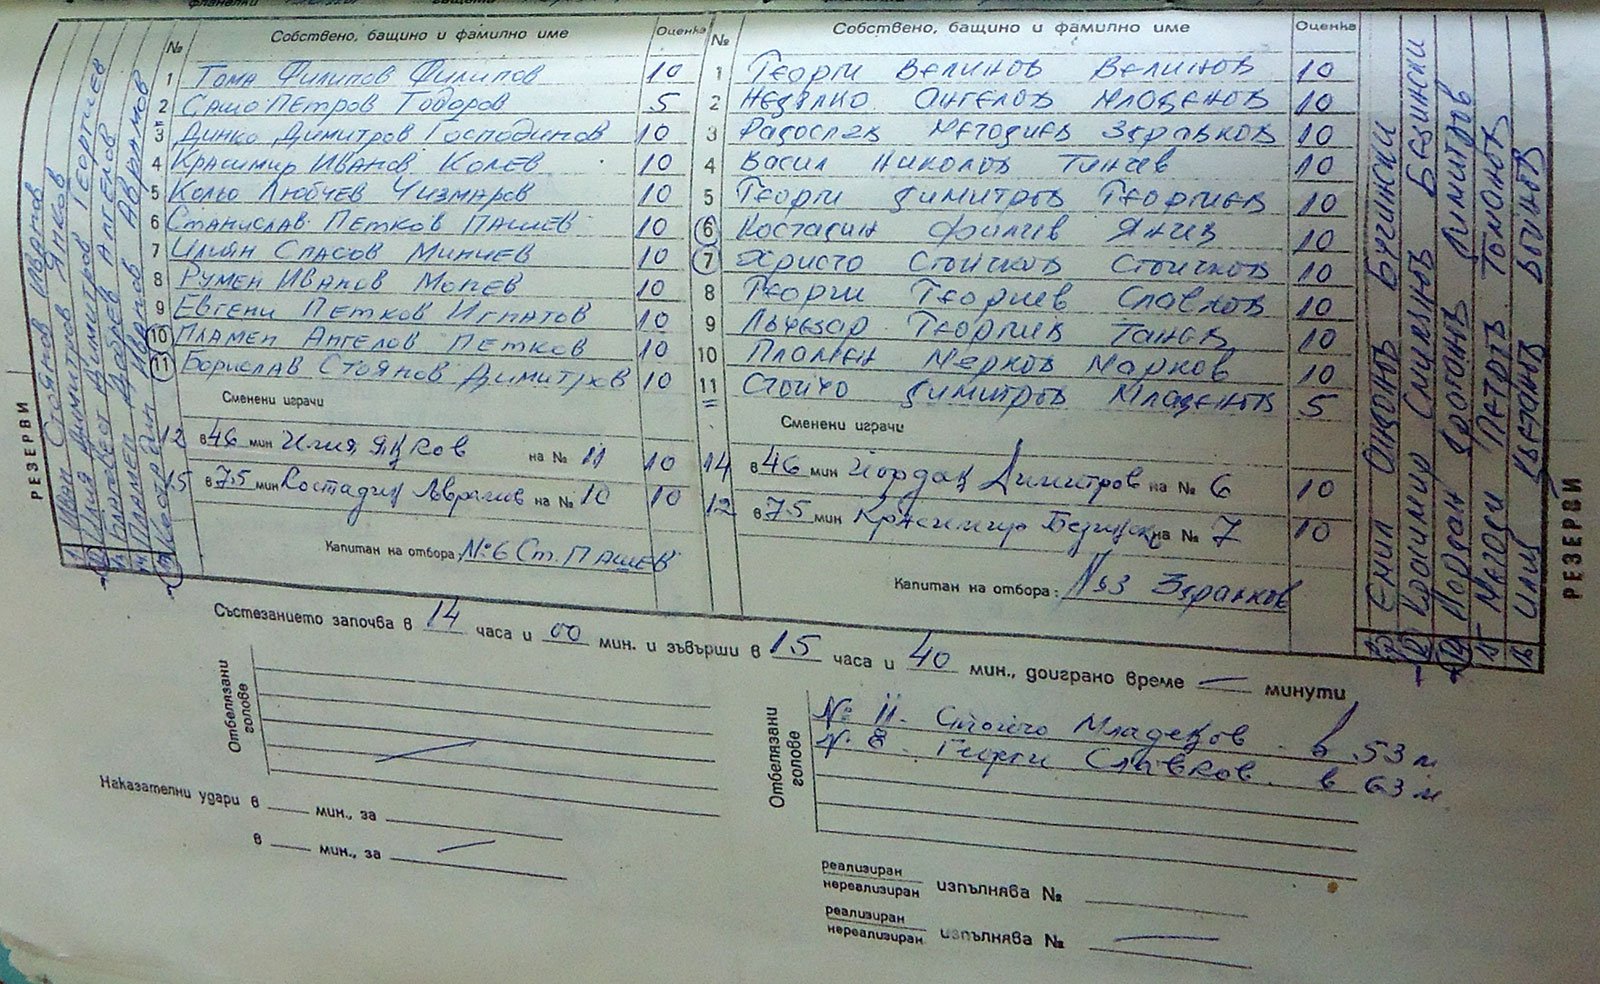 фланелки
№ Собствено, бащино и фамилно име Оценка
1 Тома Филипов Филипов 10
2 Сашо Петров Тодоров 5
3 Динко Димитров Господинов 10
4 Красимир Иванов Колев 10
5 Кольо Любчев Чизмаров 10
6 Станислав Петков Пашев 10
7 Илиян Спасов Минчев 10
8 Румен Иванов Мопев 10
9 Евгени Петков Игнатов 10
10 Пламен Ангелов Петков 10
11 Борислав Стоянов Димитров 10
Сменени играчи
12 в 46 мин Илия Янков на № 11 10
15 в 75 мин Костадин Аврамов на № 10 10
Капитан на отбора: №6 Ст. Пашев
РЕЗЕРВИ
Иван Стоянов Иванов
Илия Димитров Янков
Димитров Георгиев
14 Пламен Добрев Ангелов
Костадин Иванов Аврамов
№ Собствено, бащино и фамилно име Оценка
1 Георги Велинов Велинов 10
2 Недялко Ангелов Младенов 10
3 Радослав Методиев Здравков 10
4 Васил Николов Тинчев 10
5 Георги Димитров Георгиев 10
6 Костадин Филчев Янчев 10
7 Христо Стоичков Стоичков 10
8 Георги Георгиев Славков 10
9 Лъчезар Георгиев Танев 10
10 Пламен Марков Марков 10
11 Стойчо Димитров Младенов 5
Сменени играчи
14 в 46 мин Йордан Димитров на № 6 10
12 в 75 мин Красимир Безински на № 7 10
Капитан на отбора: №3 Здравков
РЕЗЕРВИ
Емил
Красимир Безински
Йордан Димитров
15 Методи Петров Томанов
16 Илия Войнов
Състезанието започва в 14 часа и 00 мин. и зъвърши в 15 часа и 40 мин., доиграно време — минути
Отбелязани голове
Наказателни удари в мин., за
в мин., за
Отбелязани голове
№ 11. Стойчо Младенов в 53 м
№ 8. Георги Славков в 63 м
реализиран
нереализиран изпълнява №
реализиран
нереализиран изпълнява №